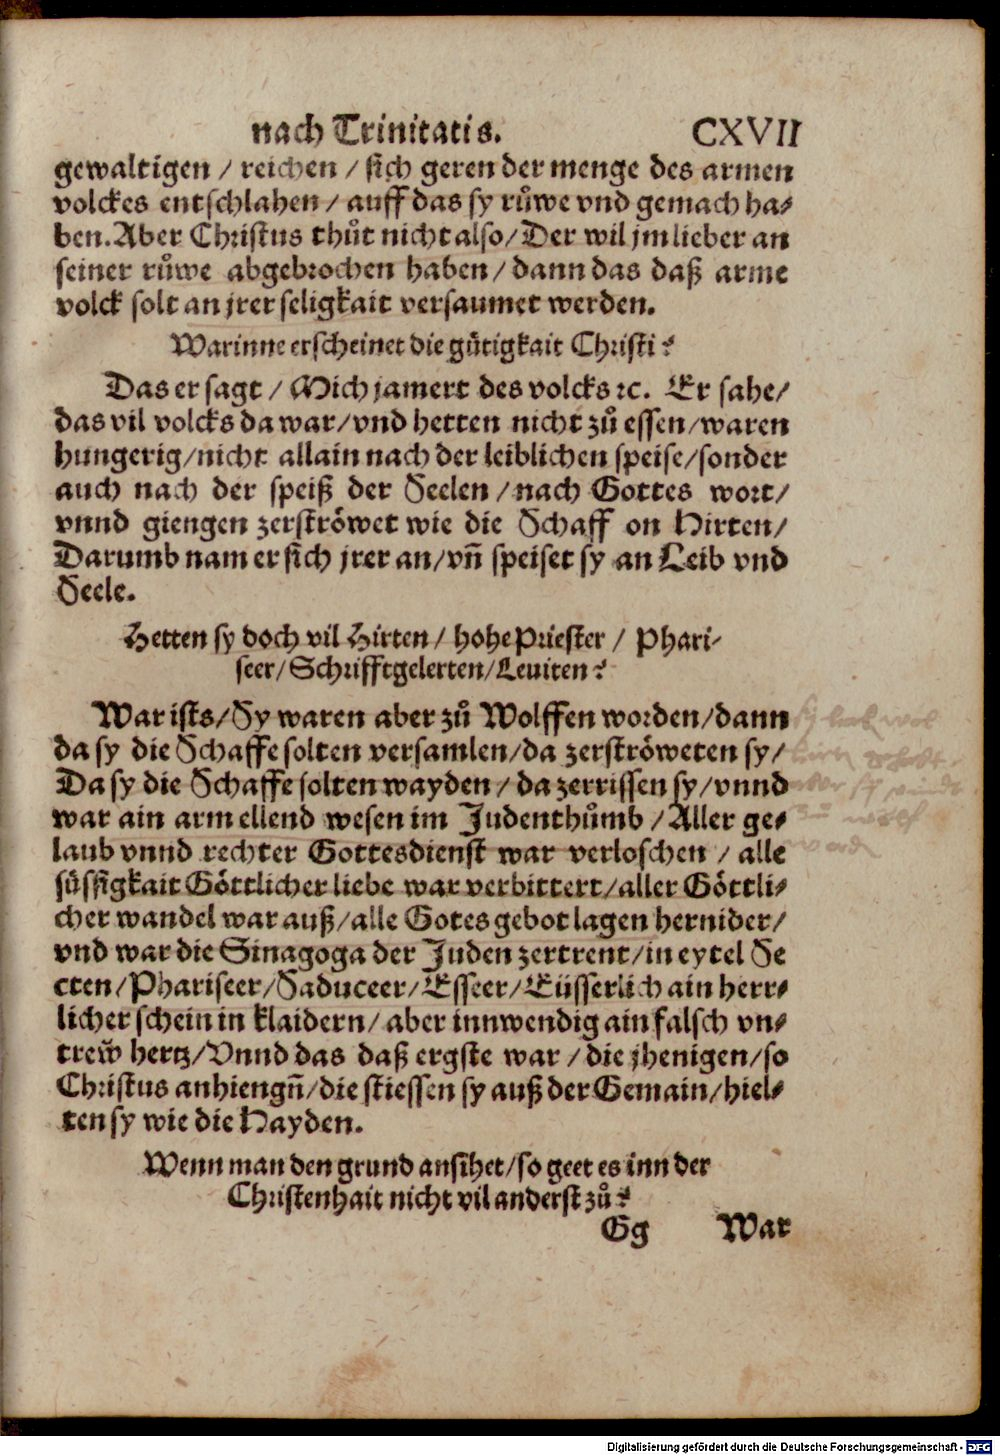 nach Trinitatis. CXVII
gewaltigen / reichen / sich geren der menge des armen
volckes entschlahen / auff das sy růwe vnd gemach ha-
ben. Aber Christus thůt nicht also / Der wil jm lieber an
seiner růwe abgebrochen haben / dann das daß arme
volck solt an jrer seligkait versaumet werden.
Warinne erscheinet die gütigkait Christi?
Das er sagt / Mich jamert des volcks ꝛc. Er sahe /
das vil volcks da war / vnd hetten nicht zů essen / waren
hungerig / nicht allain nach der leiblichen speise / sonder
auch nach der speiß der Seelen / nach Gottes wort /
vnnd giengen zerströwet wie die Schaff on Hirten /
Darumb nam er sich jrer an / vñ speiset sy an Leib vnd
Seele.
Hetten sy doch vil Hirten / hohe Priester / Phari-
seer / Schrifftgelerten / Leuiten?
War ists / Sy waren aber zů Wolffen worden / dann
da sy die Schaffe solten versamlen / da zerströweten sy /
Da sy die Schaffe solten wayden / da zerrissen sy / vnnd
war ain arm ellend wesen im Judenthůmb / Aller ge-
laub vnnd rechter Gottesdienst war verloschen / alle
süssigkait Göttlicher liebe war verbittert / aller Göttli-
cher wandel war auß / alle Gotes gebot lagen hernider /
vnd war die Sinagoga der Juden zertrent / in eytel Se
cten / Phariseer / Saduceer / Esseer / Eüsserlich ain herr-
licher schein in klaidern / aber innwendig ain falsch vn-
trew̃ hertz / Vnnd das daß ergste war / die jhenigen / so
Christus anhiengñ / die stiessen sy auß der Gemain / hiel-
ten sy wie die Hayden.
Wenn man den grund ansihet / so geet es inn der
Christenhait nicht vil anderst zů?
Gg War
Digitalisierung gefördert durch die Deutsche Forschungsgemeinschaft - DFG